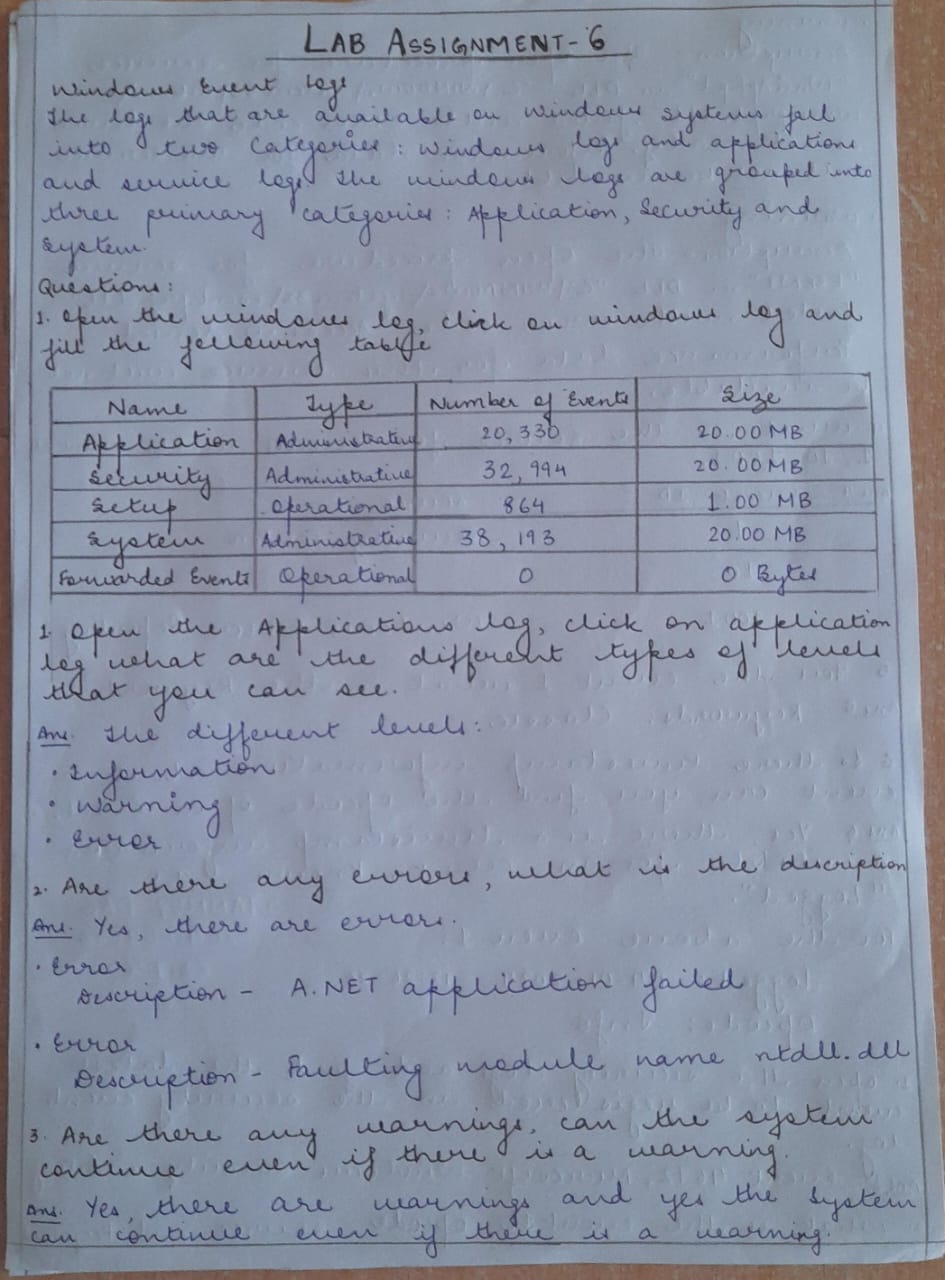 LAB ASSIGNMENT-6
Windows Event Logs
The logs that are available on windows systems fall
into two Categories: windows logs and applications
and service logs. The windows logs are grouped into
three primary categories: Application, Security and
System.
Questions:
1. Open the windows log, click on windows log and
fill the following table
Name Type Number of Events Size
Application Administrative 20,330 20.00 MB
Security Administrative 32,994 20.00 MB
Setup Operational 864 1.00 MB
System Administrative 38,193 20.00 MB
Forwarded Events Operational 0 0 Bytes
1. Open the Applications log, click on application
log what are the different types of levels
that you can see.
Ans. The different levels:
• Information
• Warning
• Error
2. Are there any errors, what is the description
Ans. Yes, there are errors.
• Error
Description - A .NET application failed
• Error
Description - Faulting module name ntdll.dll
3. Are there any warnings, can the system
continue even if there is a warning.
Ans. Yes, there are warnings and yes the system
can continue even if there is a warning.